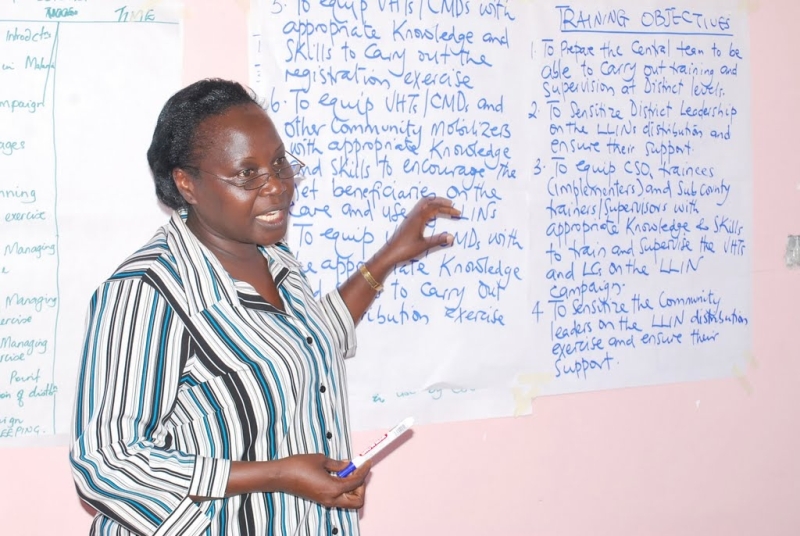 TIME
Introd
ampaign
ages
nning
exercise
Managing
e
Managing
ercise
Managing
rcise
EEPING.
5. To equip VHTs/CMDs with
appropriate Knowledge and
Skills to Carry out the
registration exercise
6. To equip VHTs/CMDs and
other Community Mobilizers
with appropriate Knowledge
and Skills to encourage the
net beneficiaries on the
Care and use LLINs
To equip MDs with
appropriate Knowledge
to Carry out
tribution exercise
TRAINING OBJECTIVES
1. To Prepare the Central team to be
able to Carry out training and
Supervision at District levels.
2. To Sensitize District Leadership
on the LLINs distribution and
ensure their support.
3. To equip CSO, trainees
(implementers) and Sub County
trainers/Supervisors with
appropriate Knowledge & Skills
to train and Supervise the VHTs
and LCs on the LLIN
Campaign.
4 To Sensitize the Community
leaders on the LLIN distribution
exercise and ensure their
Support.